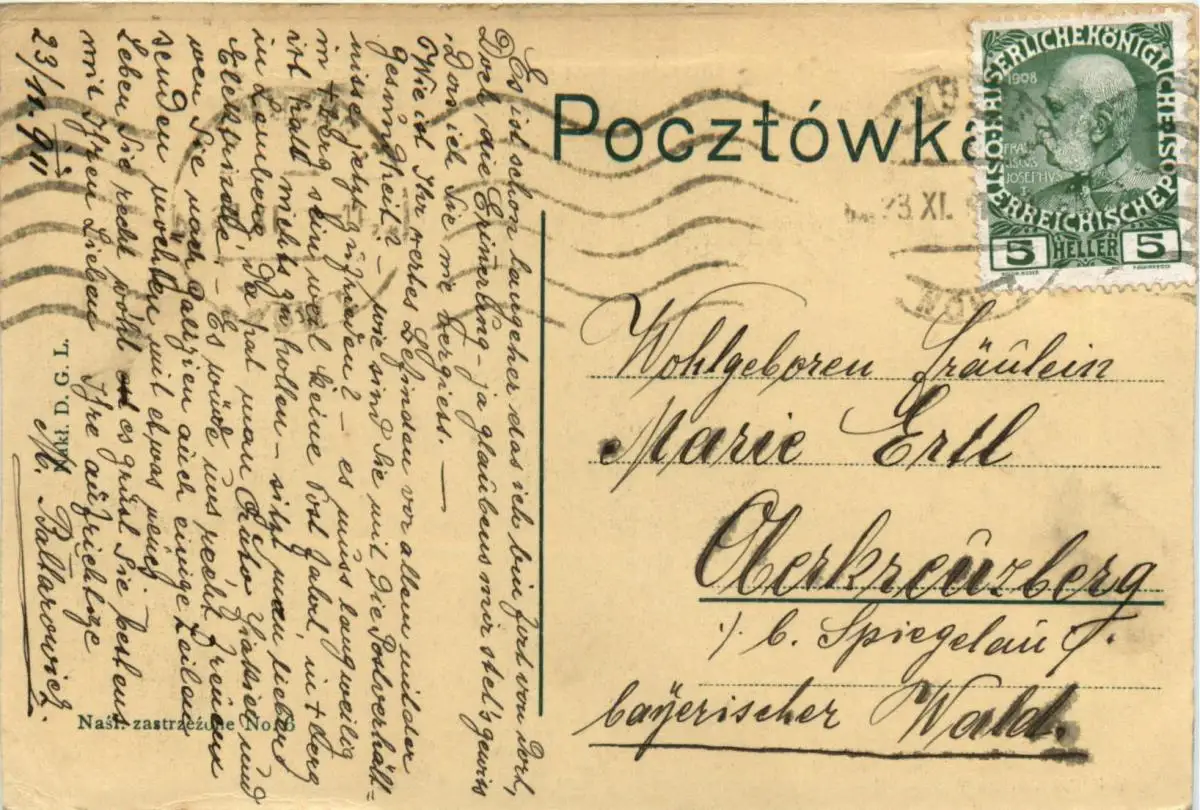 Pocztówka
KAISERLICHEKÖNIGLICHE
ÖSTERREICHISCHEPOST
1908
FRANCISCUS
JOSEPHVS
I
5 HELLER 5
23 XI
Wohlgeboren Fräulein
Marie Ertl
Oberkreuzberg
b. Spiegelau
bayerischer Wald.
Es ist schon langeher das ich bin fort von Dort,
Doch die Erinerung - ja glaubens mir stet's gewiss
Das ich Sie nie vergiess. —
Wie ist Ihr wertes Befinden vor allem wieder
Gesundheit - wie sind Sie mit Die Postverhält-
nisse jetzt zufrieden? - es muss langweilig
in + berg sein weil keine Post fahrt, in + berg
ist halt nichts zu hollen - sitzt man lieber
in Lemberg, Da hat man Auto Fiakier und
Elektrische. - Es würde uns recht freuen
wen Sie nach Galizien auch einige Zeilen
senden möchten mit etwas neues.
Leben Sie recht wohl es grüst Sie bestens
mit Ihren Lieben Ihre aufrichtige
23/11. 911 M.
Nakł. D. G. L.
Naśl. zastrzeżone No. 6